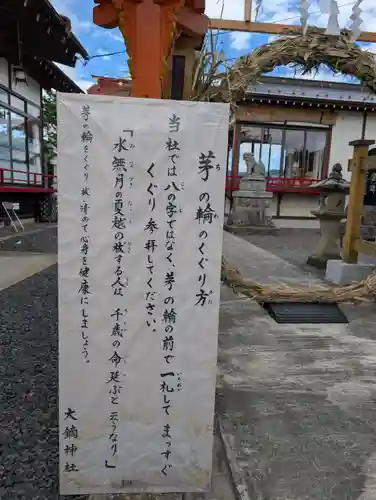 茅の輪のくぐり方
当社では八の字ではなく、茅の輪の前で一礼して まっすぐ
くぐり 参拝してください。
「水無月の夏越の祓する人は 千歳の命 延ぶと云うなり」
茅の輪をくぐり 祓い清めて心身を健康にしましょう。
大鏑神社